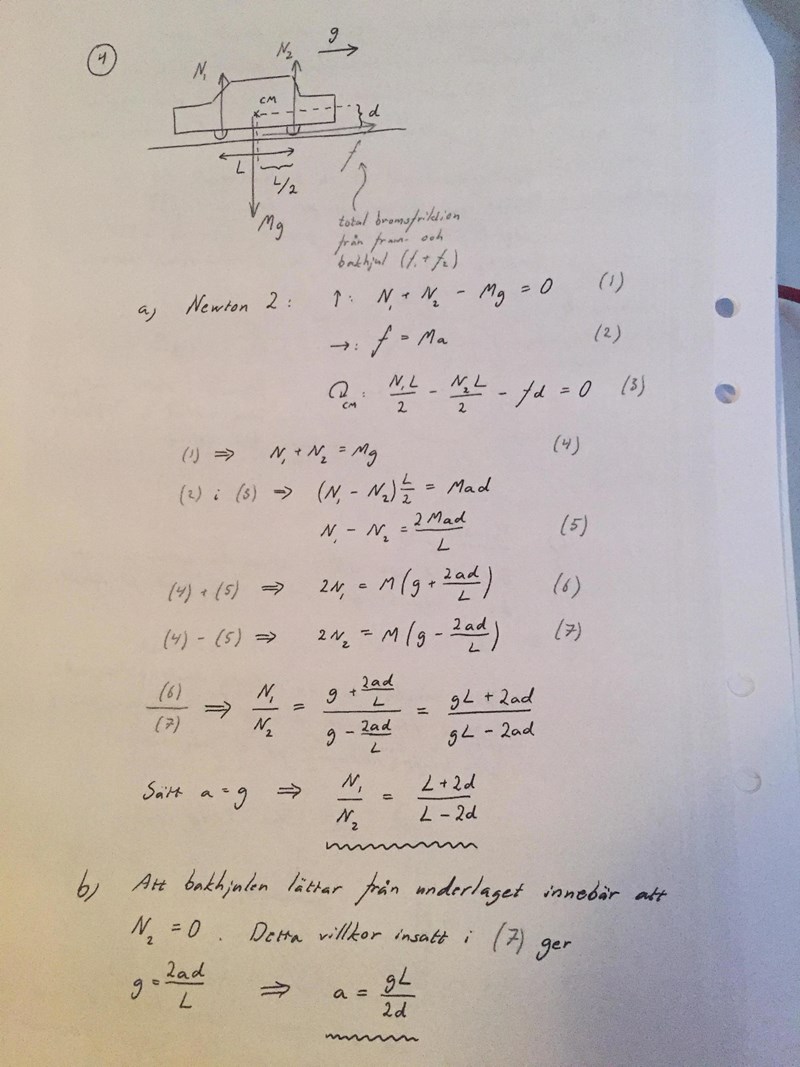 4
N₁ N₂ g
CM
d
L L/2 f
Mg
total bromsfriktion
från fram- och
bakhjul (f₁+f₂)
a) Newton 2: ↑: N₁ + N₂ - Mg = 0 (1)
→: f = Ma (2)
CM: N₁L/2 - N₂L/2 - fd = 0 (3)
(1) ⇒ N₁ + N₂ = Mg (4)
(2) i (3) ⇒ (N₁ - N₂) L/2 = Mad
N₁ - N₂ = 2Mad/L (5)
(4) + (5) ⇒ 2N₁ = M(g + 2ad/L) (6)
(4) - (5) ⇒ 2N₂ = M(g - 2ad/L) (7)
(6)/(7) ⇒ N₁/N₂ = (g + 2ad/L)/(g - 2ad/L) = (gL + 2ad)/(gL - 2ad)
Sätt a = g ⇒ N₁/N₂ = (L + 2d)/(L - 2d)
b) Att bakhjulen lättar från underlaget innebär att
N₂ = 0. Detta villkor insatt i (7) ger
g = 2ad/L ⇒ a = gL/2d